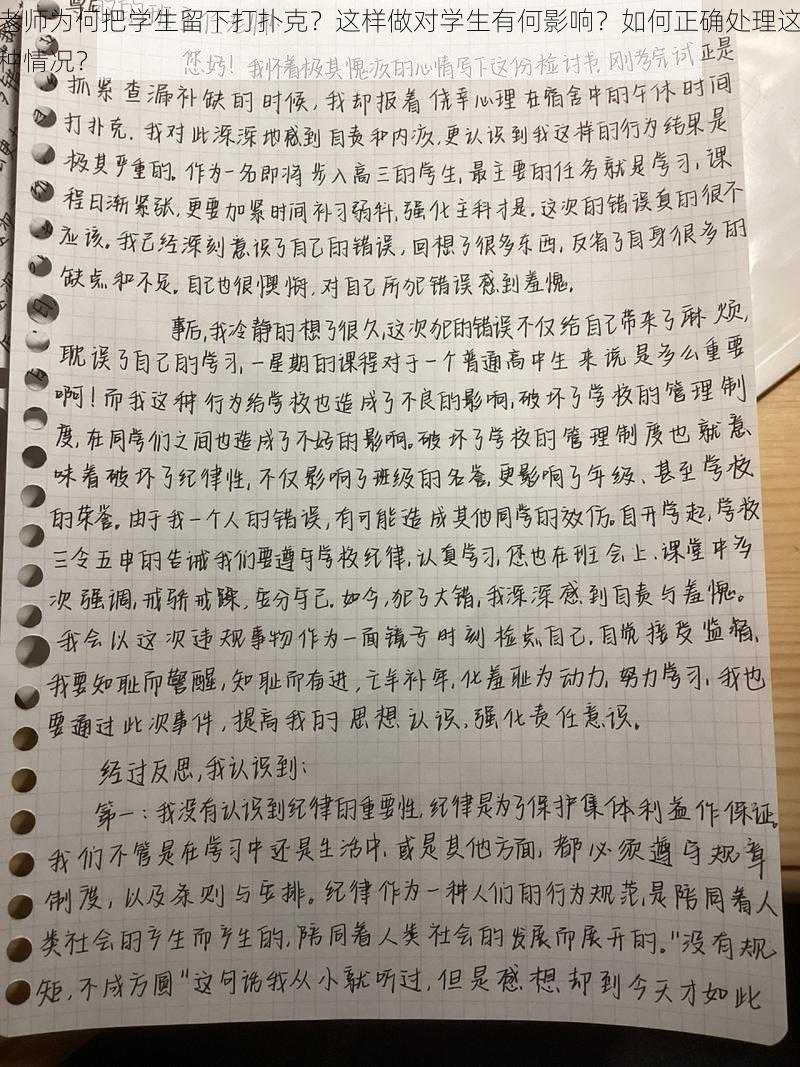 老师为何把学生留下打扑克？这样做对学生有何影响？如何正确处理这
种情况？
您好！我怀着极其愧疚的心情写下这份检讨书.刚考完试正是
抓紧查漏补缺的时候，我却报着侥幸心理在宿舍中的午休时间
打扑克.我对此深深地感到自责和内疚.更认识到我这样的行为结果是
极其严重的。作为一名即将步入高三的学生,最主要的任务就是学习，课
程日渐紧张，更要加紧时间补习弱科，强化主科才是。这次的错误真的很不
应该。我已经深刻意识了自己的错误，回想了很多东西，反省了自身很多的
缺点和不足。自己也很懊悔，对自己所犯错误感到羞愧。
事后,我冷静的想了很久,这次犯的错误不仅给自己带来了麻烦,
耽误了自己的学习,一星期的课程对于一个普通高中生来说是多么重要
啊！而我这种行为给学校也造成了不良的影响,破坏了学校的管理制
度,在同学们之间也造成了不好的影响。破坏了学校的管理制度也就意
味着破坏了纪律性,不仅影响了班级的名誉,更影响了年级、甚至学校
的荣誉。由于我一个人的错误，有可能造成其他同学的效仿。自开学起，学校
三令五申的告诫我们要遵守学校纪律，认真学习，您也在班会上、课堂中多
次强调,戒骄戒躁，安分守己.如今,犯了大错,我深深感到自责与羞愧。
我会以这次违规事物作为一面镜子时刻检点自己，自觉接受监督、
我要知耻而警醒，知耻而奋进，亡羊补牢，化羞耻为动力，努力学习，我也
要通过此次事件，提高我的思想认识，强化责任意识。
经过反思,我认识到：
第一：我没有认识到纪律的重要性，纪律是为了保护集体利益作保证。
我们不管是在学习中还是生活中,或是其他方面，都必须遵守规章
制度，以及条则与安排。纪律作为一种人们的行为规范,是陪同着人
类社会的产生而产生的,陪同着人类社会的发展而展开的。"没有规
矩，不成方圆"这句话我从小就听过，但是感想却到今天才如此